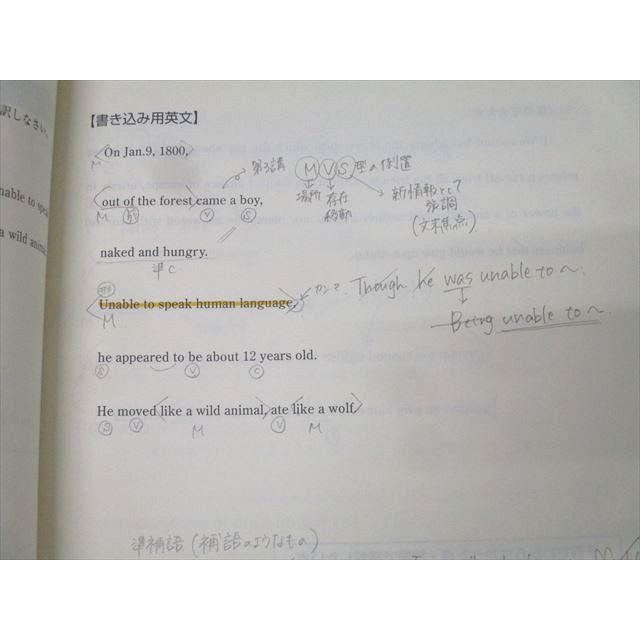 訳しなさい。
【書き込み用英文】
On Jan.9, 1800,
M
第3講 MVS型の倒置
場所 存在 移動
新情報として強調
(文末焦点)
out of the forest came a boy,
M V S
naked and hungry.
準C
Unable to speak human language,
M
カンマ Though he was unable to ~.
Being unable to ~
he appeared to be about 12 years old.
S V C
He moved like a wild animal, ate like a wolf.
S V M V M
準補語 (補語のようなもの)
a wild animal